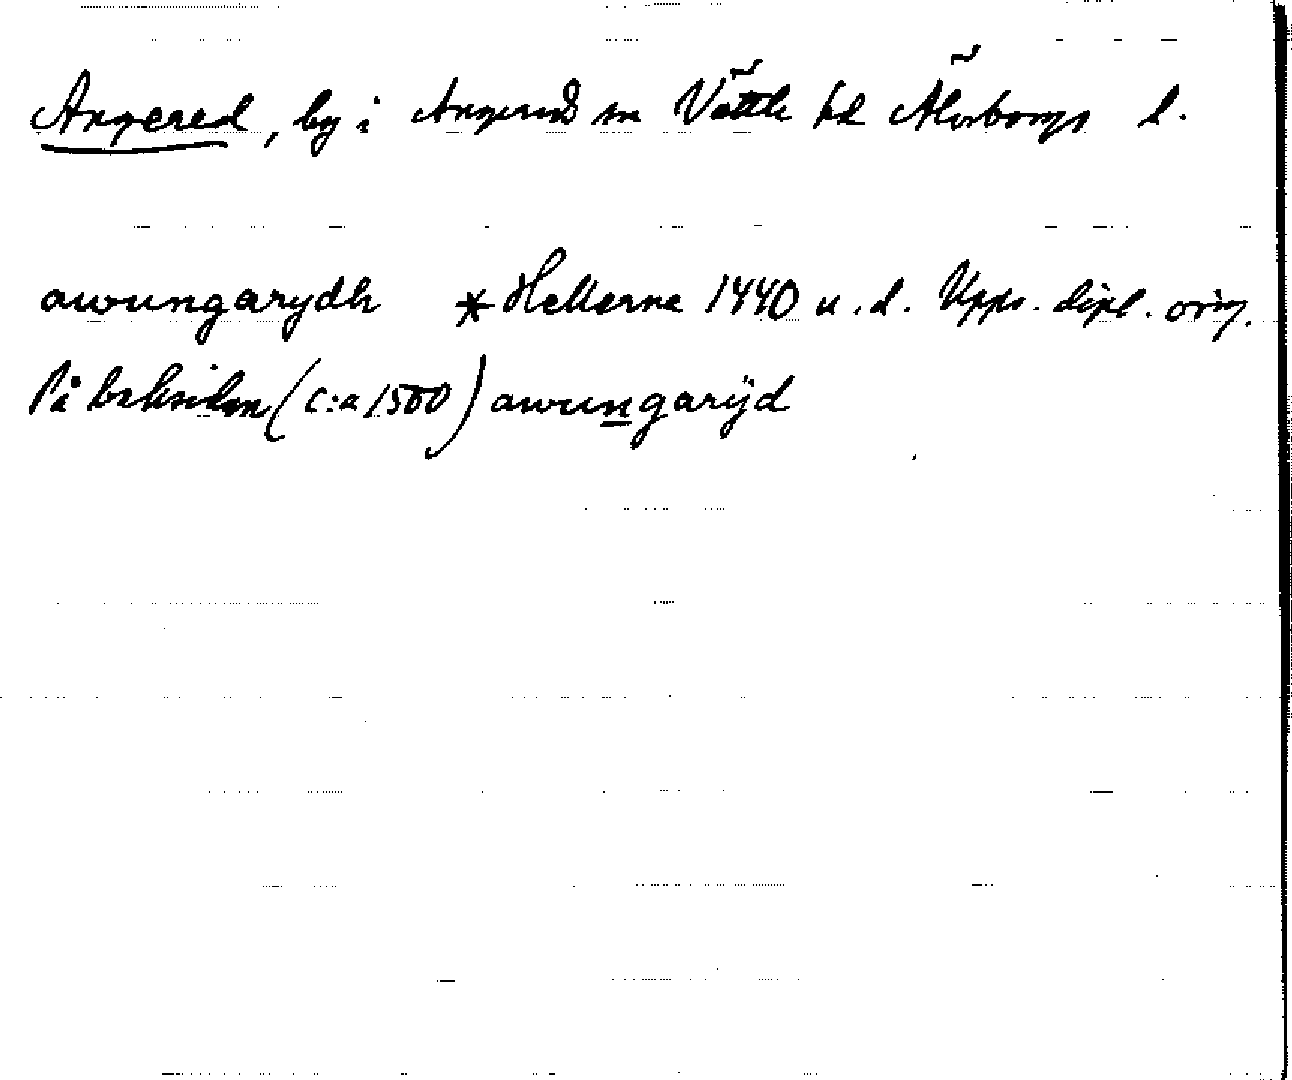 Angered, by i Angereds sn Vättle hd Älvsborgs l.
awungarydh * Hellerne 1440 u. d. Upps. dipl. orig.
På baksidan (c:a 1500) awungarÿd